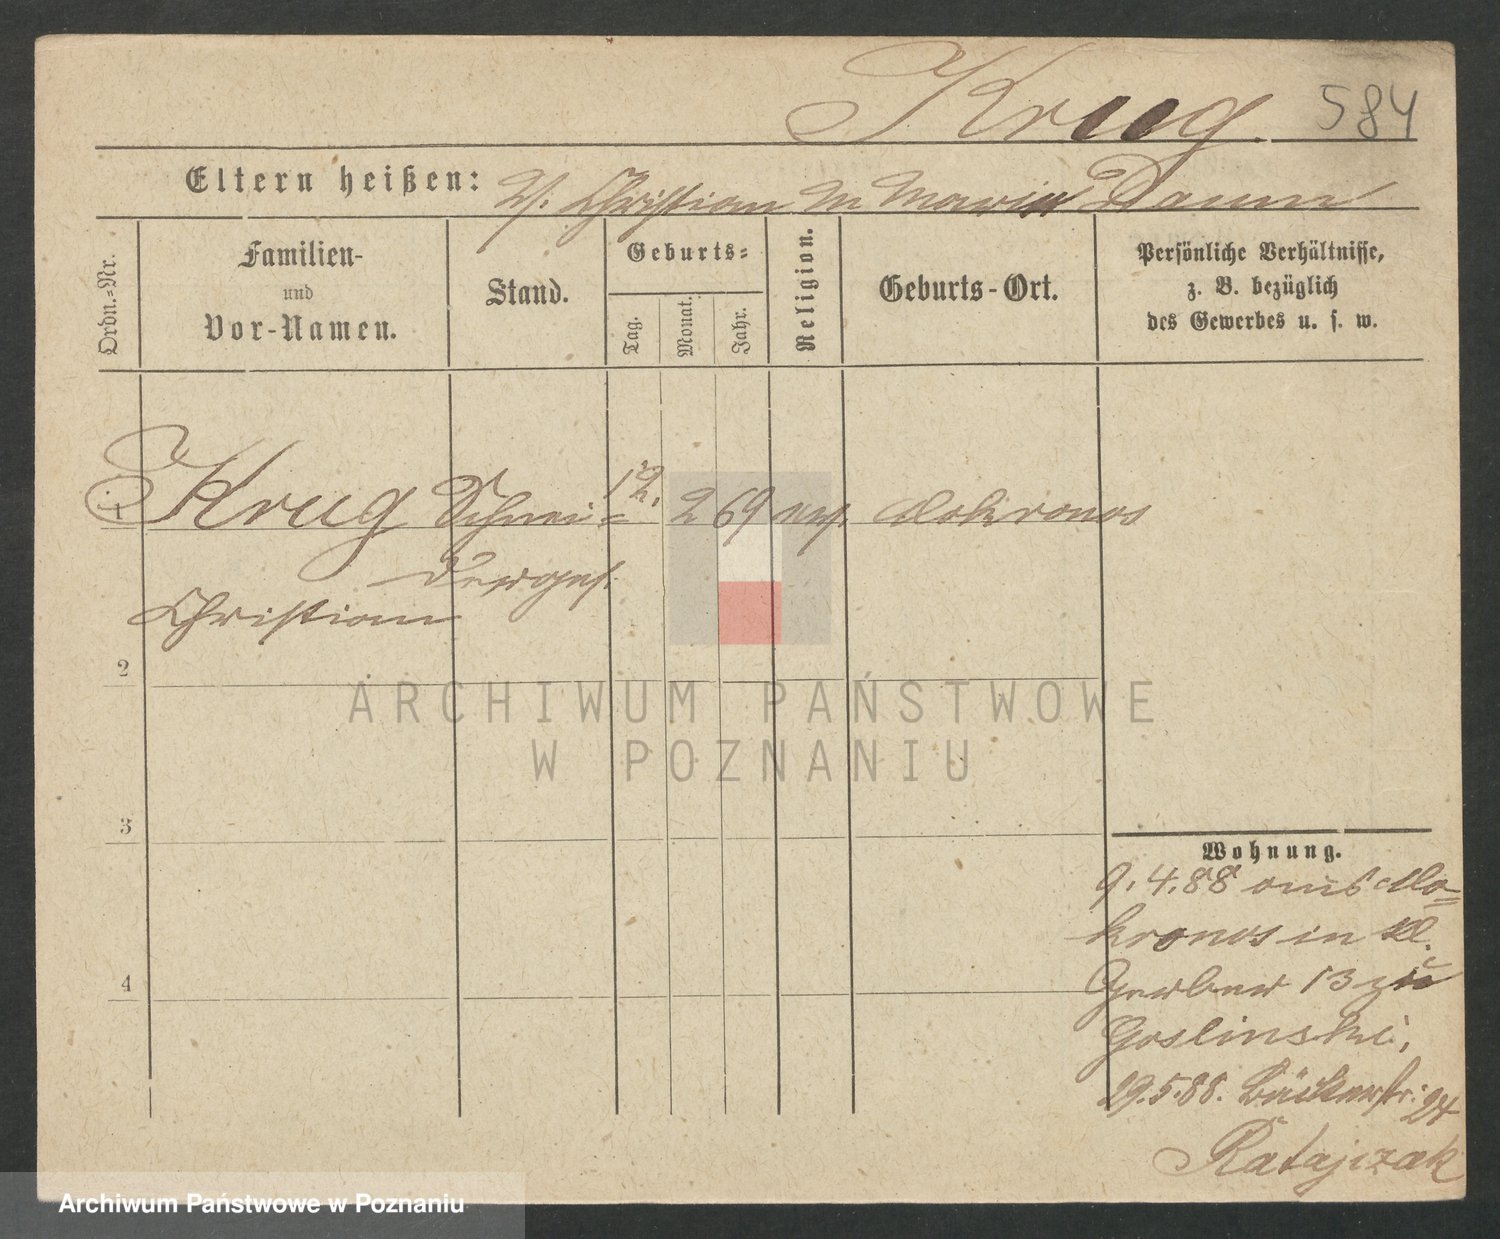 Krug 584
Eltern heißen: V. Christian M Maria Damm
Ordn.=Nr.
Familien-
und
Vor-Namen.
Stand.
Geburts=
Tag.
Monat.
Jahr.
Religion.
Geburts-Ort.
Persönliche Verhältnisse,
z. B. bezüglich
des Gewerbes u. s. w.
1 Krug Schnei= 12. 2 69 ev. Mokronos
derges.
Christian
2
3
4
ARCHIWUM PAŃSTWOWE
W POZNANIU
Wohnung.
9.4.88 aus Mo=
kronos in Kl.
Gerber 13 zu
Goslinski,
29.5.88. Bäckerstr. 24
Ratajczak
Archiwum Państwowe w Poznaniu